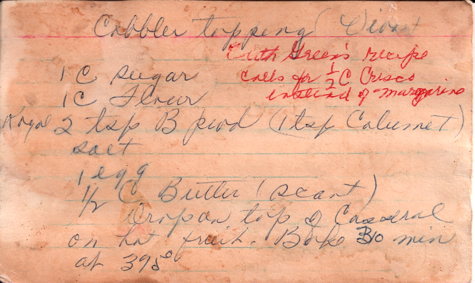 Cobbler topping
Edith Green's recipe
calls for 1/2 C Crisco
instead of margarine
1 C sugar
1 C Flour
Royal 2 tsp B powd (1 tsp Calumet)
salt
1 egg
1/2 C Butter (scant)
Drop on top of Casseral
on hot fruit. Bake 30 min
at 395°